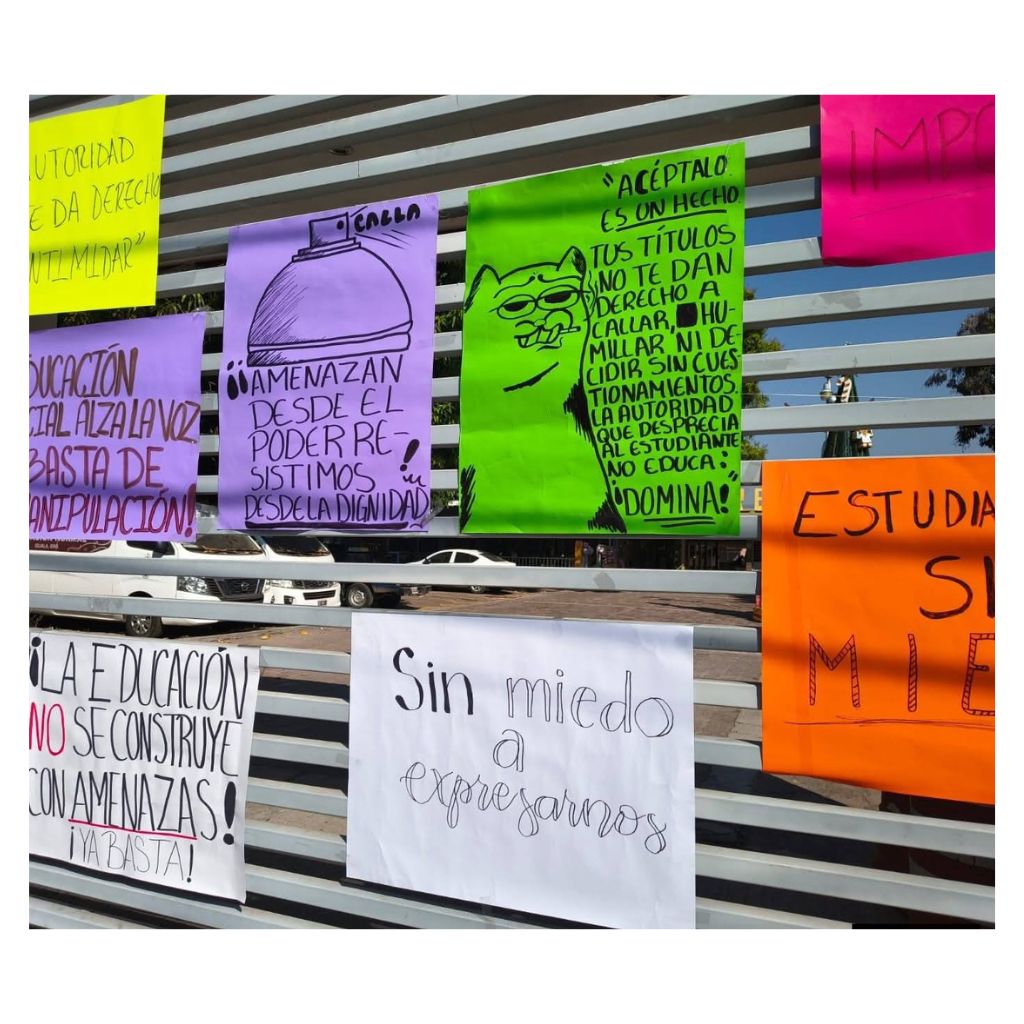 UTORIDAD
E DA DERECHO
NTIMIDAR"
CALLA
¡¡AMENAZAN
DESDE EL
PODER RE-
SISTIMOS
DESDE LA DIGNIDAD!!
"ACÉPTALO
ES UN HECHO
TUS TÍTULOS
NO TE DAN
DERECHO A
CALLAR, HU-
MILLAR, NI DE-
CIDIR SIN CUES
TIONAMIENTOS
LA AUTORIDAD
QUE DESPRECIA
AL ESTUDIANTE
NO EDUCA:
¡DOMINA!"
IMPO
DUCACIÓN
CIAL ALZA LA VOZ
BASTA DE
ANIPULACIÓN!
ESTUDIA
SI
MIE
¡LA EDUCACIÓN
NO SE CONSTRUYE
CON AMENAZAS!
¡YA BASTA!
Sin miedo
a
expresarnos